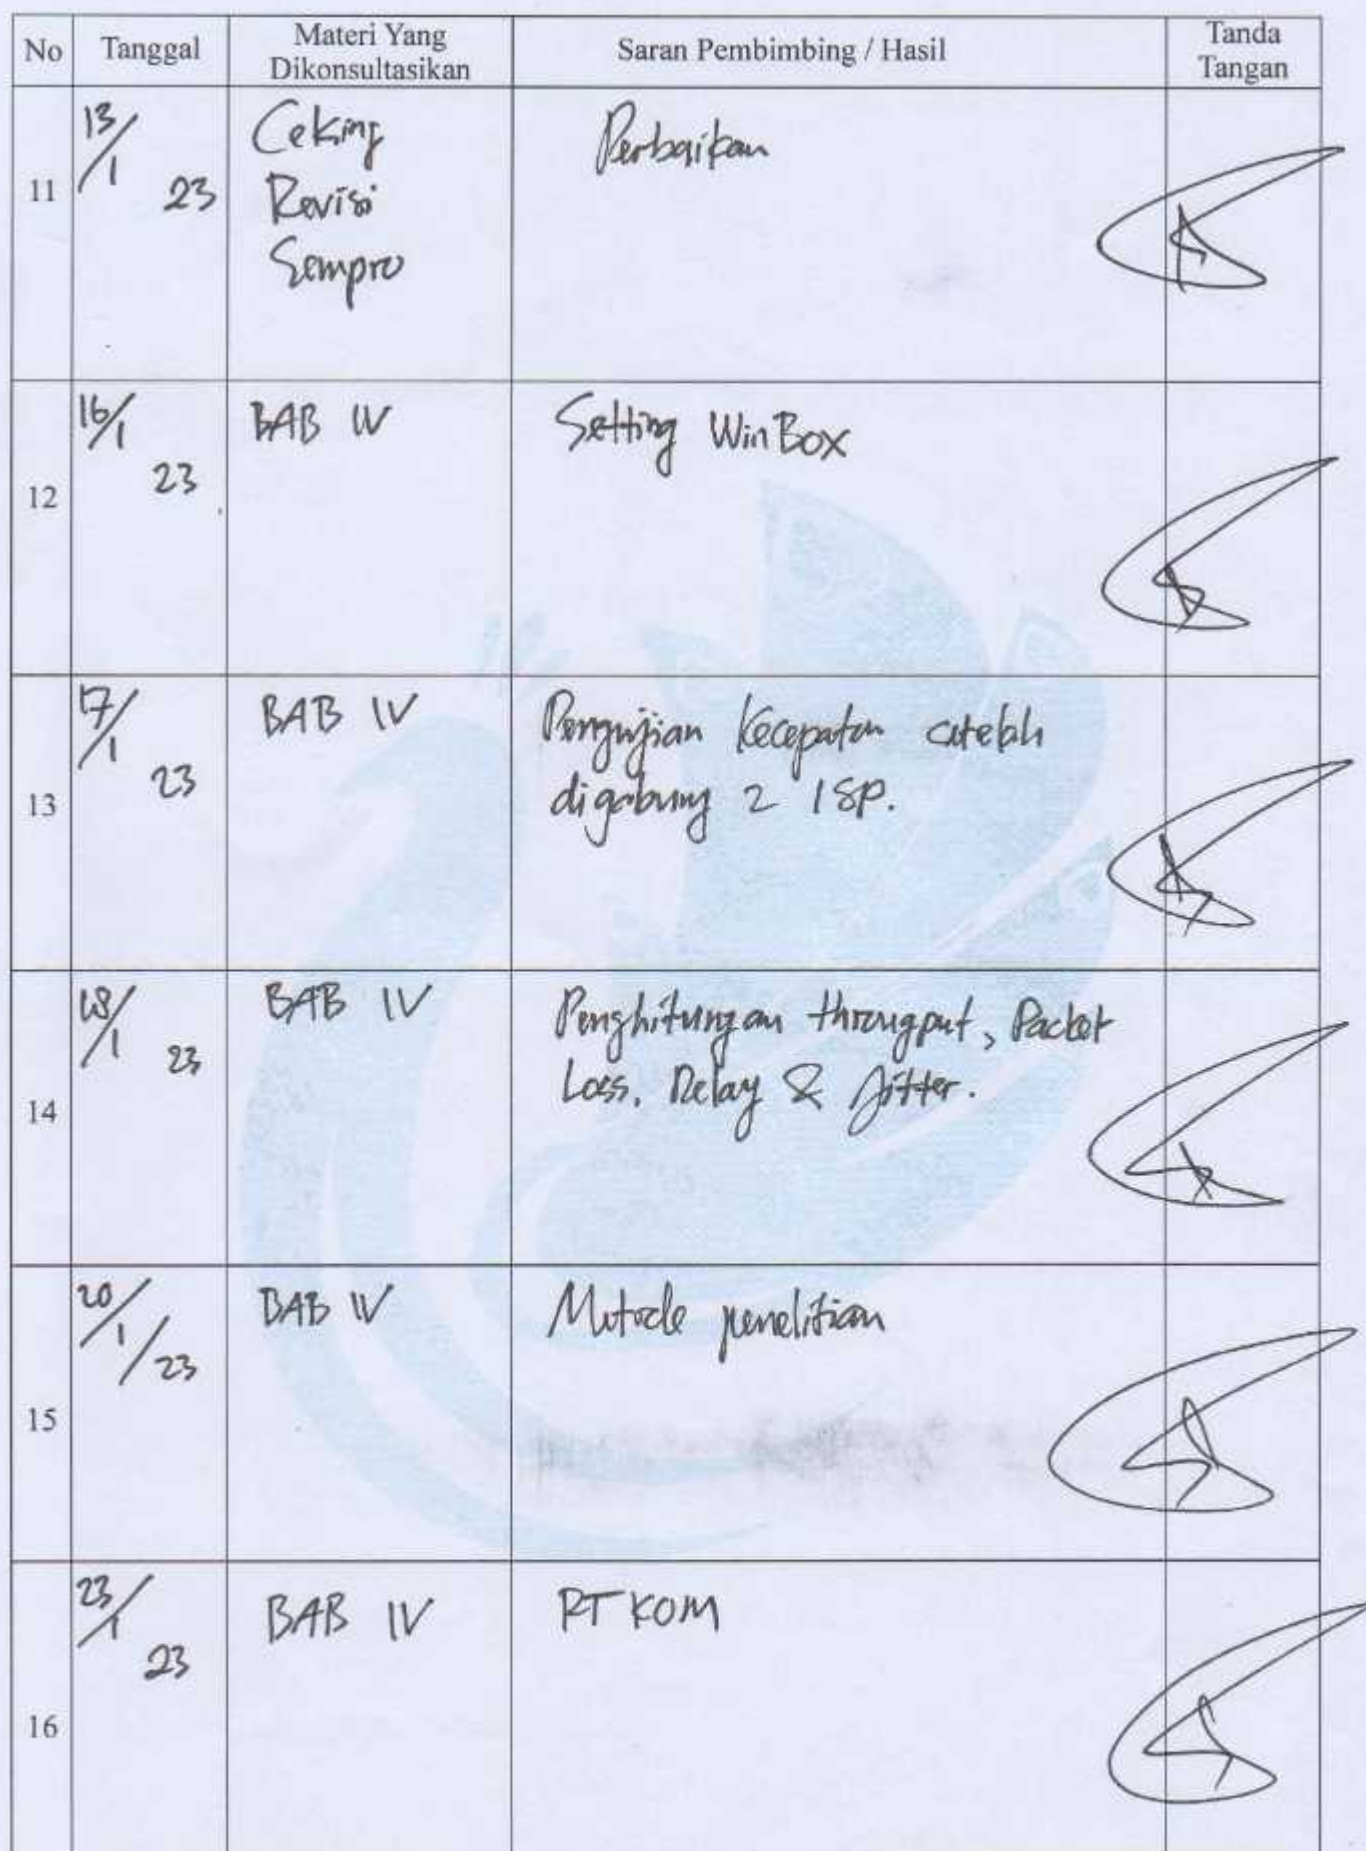 No Tanggal Materi Yang Dikonsultasikan Saran Pembimbing / Hasil Tanda Tangan
11 13/1 23 Ceking Perbaikan
Revisi
Sempro
12 16/1 23 BAB IV Setting WinBox
13 17/1 23 BAB IV Pengujian Kecepatan setelah
digabung 2 ISP.
14 18/1 23 BAB IV Penghitungan througput, Packet
Loss, Delay & Jitter.
15 20/1/23 BAB IV Metode penelitian
16 23/1 23 BAB IV RTKOM